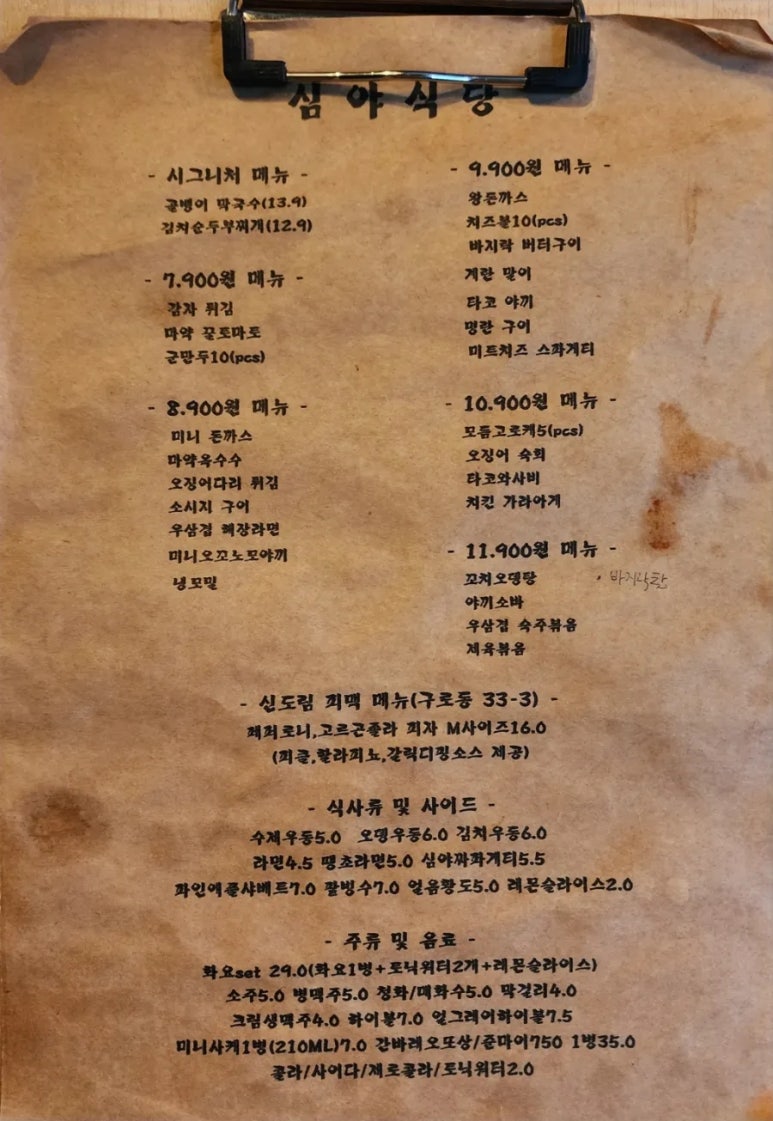 심야식당
- 시그니처 메뉴 -
골뱅이 막국수(13.9)
김치순두부찌개(12.9)
- 7.900원 메뉴 -
감자 튀김
마약 꿀토마토
군만두10(pcs)
- 8.900원 메뉴 -
미니 돈까스
마약옥수수
오징어다리 튀김
소시지 구이
우삼겹 해장라면
미니오꼬노모야끼
냉모밀
- 9.900원 메뉴 -
왕돈까스
치즈볼10(pcs)
바지락 버터구이
계란 말이
타코 야끼
명란 구이
미트치즈 스파게티
- 10.900원 메뉴 -
모듬고로케5(pcs)
오징어 숙회
타코와사비
치킨 가라아게
- 11.900원 메뉴 -
꼬치오뎅탕
• 바지락탕
야끼소바
우삼겹 숙주볶음
제육볶음
- 신도림 피맥 메뉴(구로동 33-3) -
페퍼로니,고르곤졸라 피자 M사이즈16.0
(피클,할라피뇨,갈릭디핑소스 제공)
- 식사류 및 사이드 -
수제우동5.0 오뎅우동6.0 김치우동6.0
라면4.5 땡초라면5.0 심야짜파게티5.5
파인애플샤베트7.0 팥빙수7.0 얼음황도5.0 레몬슬라이스2.0
- 주류 및 음료 -
화요set 29.0(화요1병+토닉워터2개+레몬슬라이스)
소주5.0 병맥주5.0 청하/매화수5.0 막걸리4.0
크림생맥주4.0 하이볼7.0 얼그레이하이볼7.5
미니사케1병(210ML)7.0 간바레오또상/준마이750 1병35.0
콜라/사이다/제로콜라/토닉워터2.0